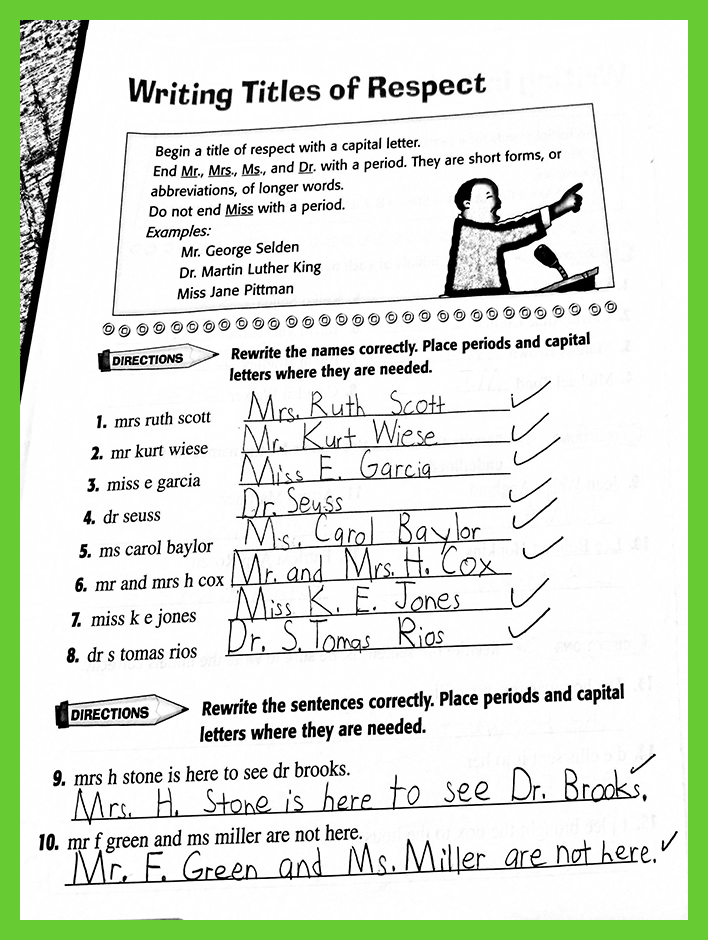 Writing Titles of Respect
Begin a title of respect with a capital letter.
End Mr., Mrs., Ms., and Dr. with a period. They are short forms, or
abbreviations, of longer words.
Do not end Miss with a period.
Examples:
Mr. George Selden
Dr. Martin Luther King
Miss Jane Pittman
DIRECTIONS Rewrite the names correctly. Place periods and capital
letters where they are needed.
1. mrs ruth scott Mrs. Ruth Scott
2. mr kurt wiese Mr. Kurt Wiese
3. miss e garcia Miss E. Garcia
4. dr seuss Dr. Seuss
5. ms carol baylor Ms. Carol Baylor
6. mr and mrs h cox Mr. and Mrs. H. Cox
7. miss k e jones Miss K. E. Jones
8. dr s tomas rios Dr. S. Tomas Rios
DIRECTIONS Rewrite the sentences correctly. Place periods and capital
letters where they are needed.
9. mrs h stone is here to see dr brooks.
Mrs. H. Stone is here to see Dr. Brooks.
10. mr f green and ms miller are not here.
Mr. F. Green and Ms. Miller are not here.